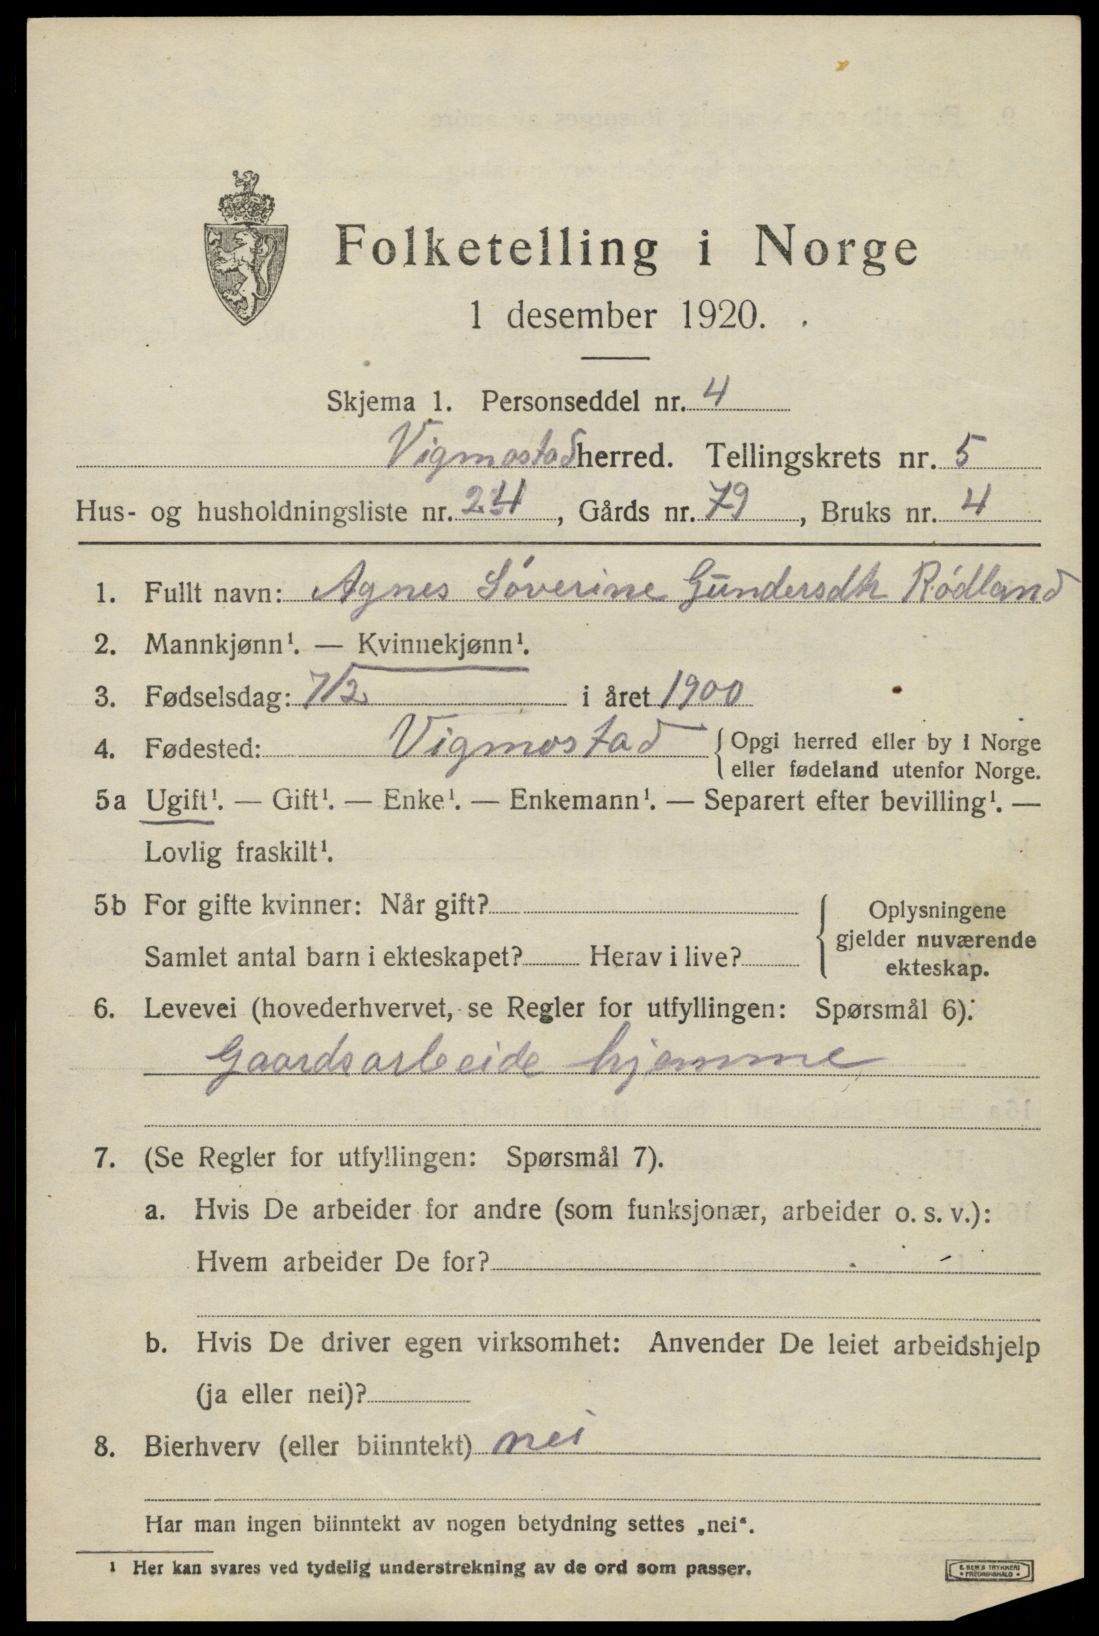 Folketelling i Norge
1 desember 1920.
Skjema 1. Personseddel nr. 4
Vigmostad herred. Tellingskrets nr. 5
Hus- og husholdningsliste nr. 24, Gårds nr. 79, Bruks nr. 4
1. Fullt navn: Agnes Söverine Gundersdtr Rødland
2. Mannkjønn¹. — Kvinnekjønn¹.
3. Fødselsdag: 7/2 i året 1900
4. Fødested: Vigmostad { Opgi herred eller by i Norge
eller fødeland utenfor Norge.
5a Ugift¹. — Gift¹. — Enke¹. — Enkemann¹. — Separert efter bevilling¹. —
Lovlig fraskilt¹.
5b For gifte kvinner: Når gift?
Samlet antal barn i ekteskapet? Herav i live?
Oplysningene
gjelder nuværende
ekteskap.
6. Levevei (hovederhvervet, se Regler for utfyllingen: Spørsmål 6):
Gaardsarbeide hjemme
7. (Se Regler for utfyllingen: Spørsmål 7).
a. Hvis De arbeider for andre (som funksjonær, arbeider o. s. v.):
Hvem arbeider De for?
b. Hvis De driver egen virksomhet: Anvender De leiet arbeidshjelp
(ja eller nei)?
8. Bierhverv (eller biinntekt) nei
Har man ingen biinntekt av nogen betydning settes „nei“.
¹ Her kan svares ved tydelig understrekning av de ord som passer.
E. SEM'S TRYKKERI
FREDRIKSHALD